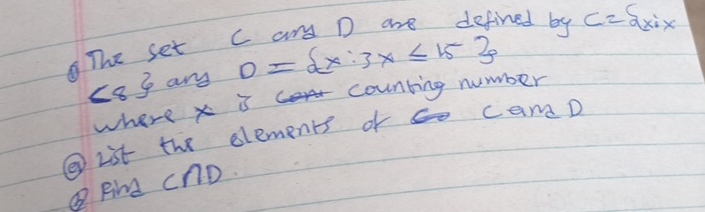 The set C and D are defined by C = {x:x
<8} and D = {x:3x ≤ 15}
where x is counting number
(a) List the elements of C and D
(b) Find C∩D.